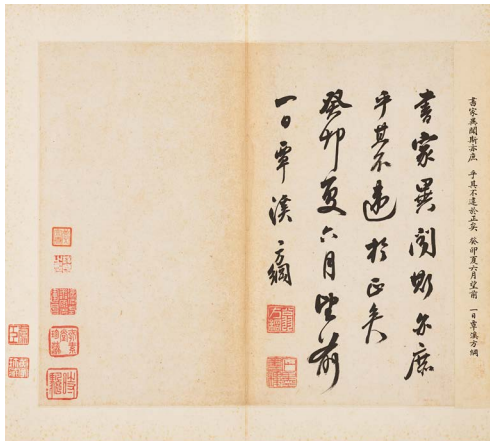 書家異聞斯亦庶 乎其不違於正矣 癸卯夏六月望前 一日覃溪方綱
書家異聞斯亦庶
乎其不違於正矣
癸卯夏六月望前
一日覃溪方綱